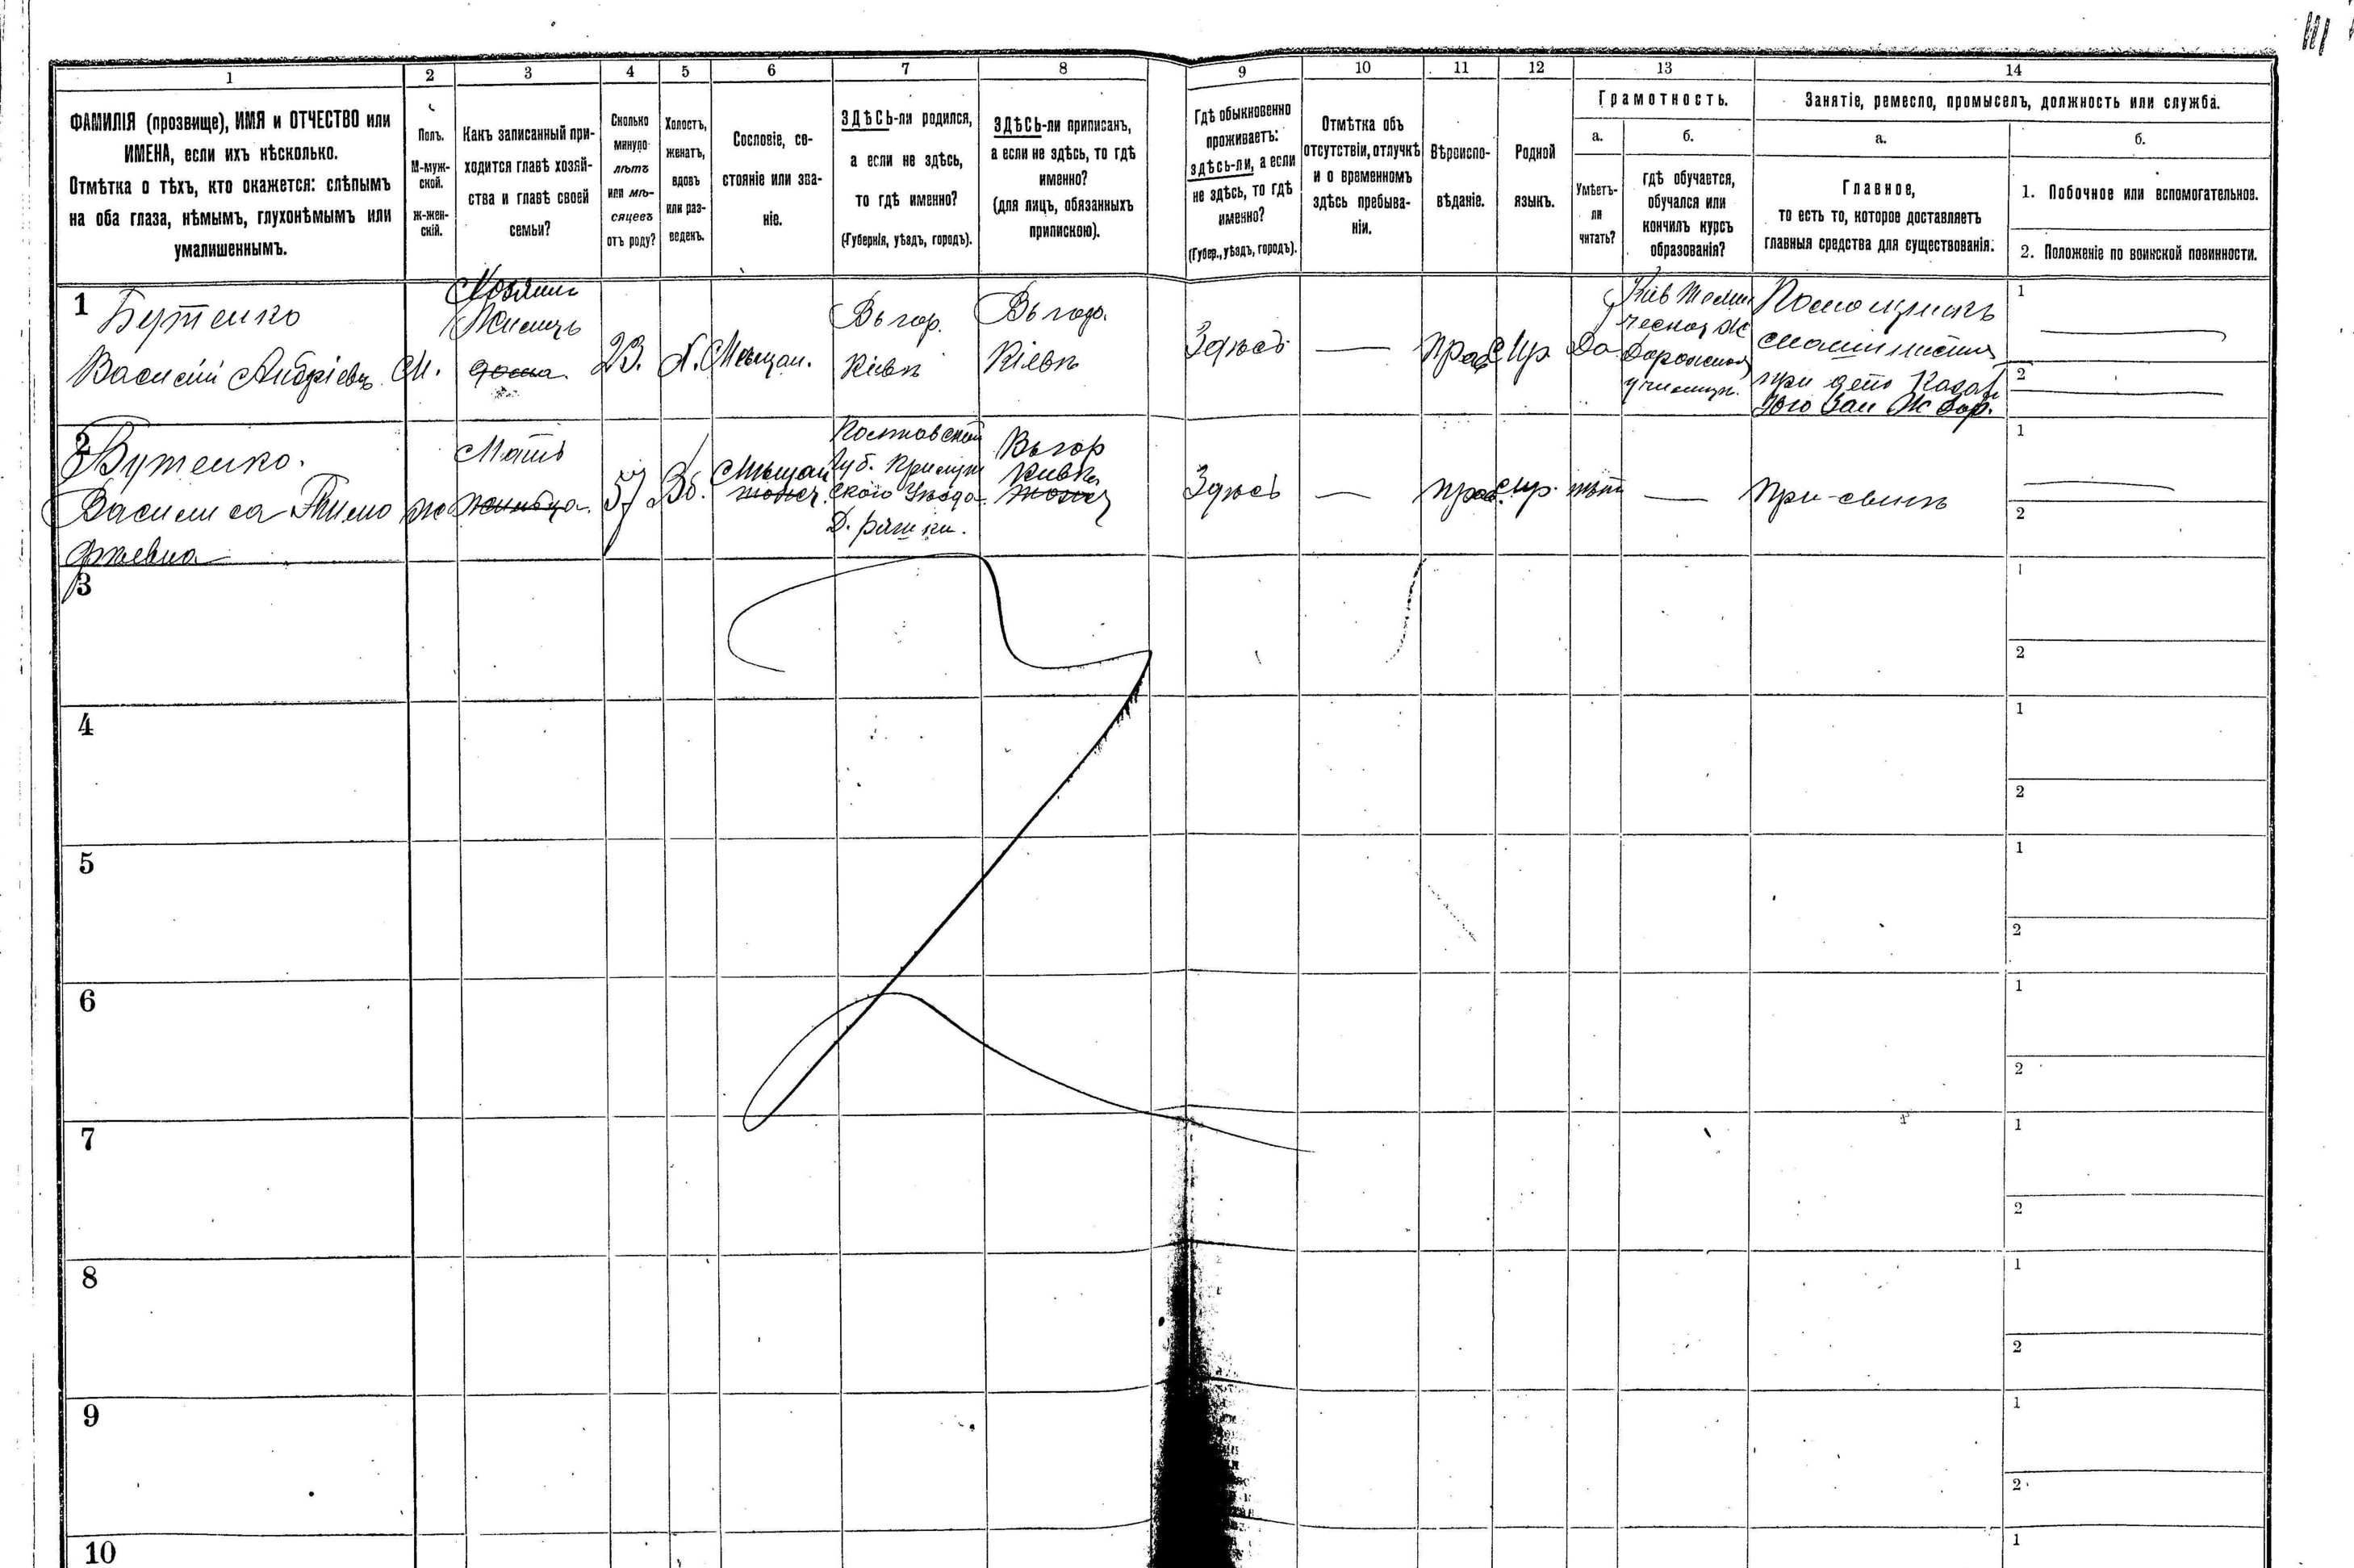 1 2 3 4 5 6 7 8 9 10 11 12 13 14
ФАМИЛІЯ (прозвище), ИМЯ и ОТЧЕСТВО или
ИМЕНА, если ихъ нѣсколько.
Отмѣтка о тѣхъ, кто окажется: слѣпымъ
на оба глаза, нѣмымъ, глухонѣмымъ или
умалишеннымъ.
Полъ.
М-муж-
ской.
Ж-жен-
скій.
Какъ записанный при-
ходится главѣ хозяй-
ства и главѣ своей
семьи?
Сколько
минуло
лѣтъ
или мѣ-
сяцевъ
отъ роду?
Холостъ,
женатъ,
вдовъ
или раз-
веденъ.
Сословіе, со-
стояніе или зва-
ніе.
ЗДѢСЬ-ли родился,
а если не здѣсь,
то гдѣ именно?
(Губернія, уѣздъ, городъ).
ЗДѢСЬ-ли приписанъ,
а если не здѣсь, то гдѣ
именно?
(для лицъ, обязанныхъ
припискою).
Гдѣ обыкновенно
проживаетъ:
здѣсь-ли, а если
не здѣсь, то гдѣ
именно?
(Губер., уѣздъ, городъ).
Отмѣтка объ
отсутствіи, отлучкѣ
и о временномъ
здѣсь пребыва-
ніи.
Вѣроиспо-
вѣданіе.
Родной
языкъ.
Грамотность.
а.
Умѣетъ-
ли
читать?
б.
гдѣ обучается,
обучался или
кончилъ курсъ
образованія?
Занятіе, ремесло, промыселъ, должность или служба.
а.
Главное,
то есть то, которое доставляетъ
главныя средства для существованія.
б.
1. Побочное или вспомогательное.
2. Положеніе по воинской повинности.
1
Бутенко
Василій Андріевъ
М.
Хозяинъ
Жилецъ
23.
Х.
Мѣщан.
Въ гор.
Кіевѣ
Въ гор.
Кіевѣ
Здѣсь
—
Прав
Да
Дорожное
училищѣ.
Помощникъ
машиниста
при депо
Юго Зап Ж дор.
1
2
2
Бутенко.
Василиса Тимо
фѣевна
Ж
Мать
57
Вд.
Мѣщан
Полтавской
Губ. Прилук
ского Уѣзда
Въ гор
Кіевѣ
Здѣсь
—
Прав.
нѣт
—
При сынѣ
1
2
3
1
2
4
1
2
5
1
2
6
1
2
7
1
2
8
1
2
9
1
2
10
1